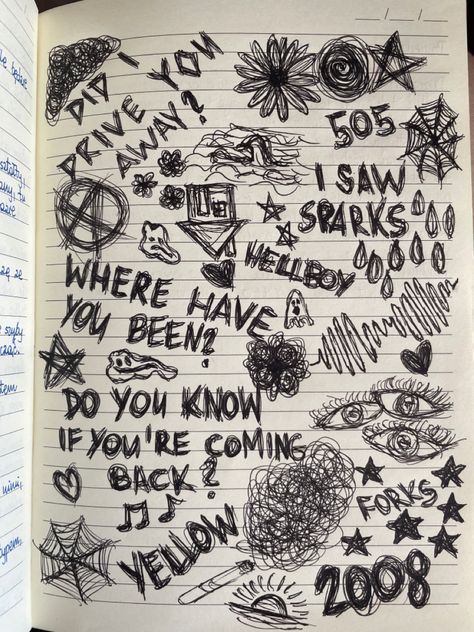 DID I
DRIVE YOU
AWAY?
505
I SAW
SPARKS
HELLBOY
WHERE HAVE
YOU BEEN?
DO YOU KNOW
IF YOU'RE COMING
BACK?
FORKS
YELLOW
2008